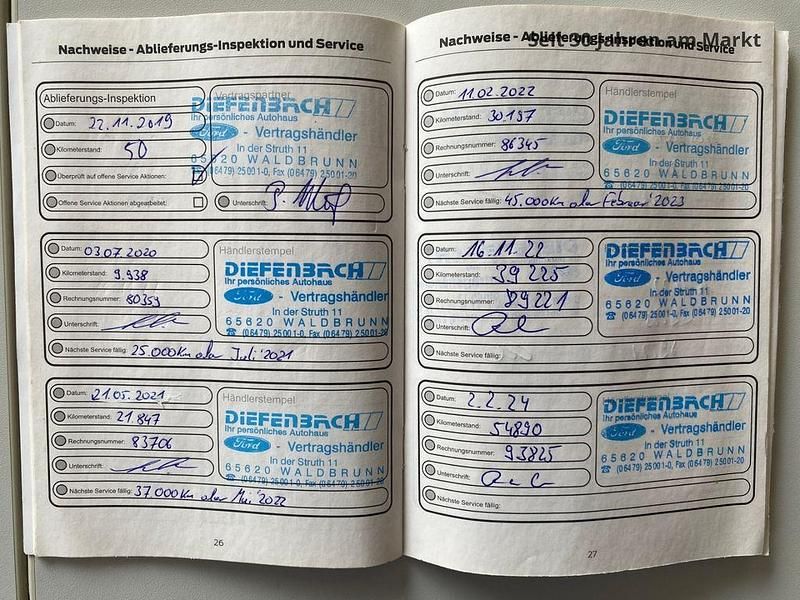 Nachweise - Ablieferungs-Inspektion und Service
Ablieferungs-Inspektion
Datum: 22.11.2019
Kilometerstand: 50
Überprüft auf offene Service Aktionen:
Offene Service Aktionen abgearbeitet:
Vertragspartner
DIEFENBACH
Ihr persönliches Autohaus
Ford - Vertragshändler
In der Struth 11
65620 WALDBRUNN
(06479) 25001-0, Fax (06479) 25001-20
Unterschrift:
Datum: 03.07.2020
Kilometerstand: 9.938
Rechnungsnummer: 80359
Unterschrift:
Händlerstempel
DIEFENBACH
Ihr persönliches Autohaus
Ford - Vertragshändler
In der Struth 11
65620 WALDBRUNN
☎ (06479) 25001-0, Fax (06479) 25001-20
Nächste Service fällig: 25.000Km oder Juli 2021
Datum: 21.05.2021
Kilometerstand: 21.847
Rechnungsnummer: 83706
Unterschrift:
Händlerstempel
DIEFENBACH
Ihr persönliches Autohaus
Ford - Vertragshändler
In der Struth 11
65620 WALDBRUNN
☎ (06479) 25001-0, Fax (06479) 25001-20
Nächste Service fällig: 37.000Km oder Mai 2022
26
Nachweise - Ablieferungs-Inspektion und Service
Seit 30 Jahren am Markt
Datum: 11.02.2022
Kilometerstand: 30.197
Rechnungsnummer: 86345
Unterschrift:
Händlerstempel
DIEFENBACH
Ihr persönliches Autohaus
Ford - Vertragshändler
In der Struth 11
65620 WALDBRUNN
☎ (06479) 25001-0, Fax (06479) 25001-20
Nächste Service fällig: 45.000Km oder Februar 2023
Datum: 16.11.22
Kilometerstand: 39225
Rechnungsnummer: 89221
Unterschrift:
DIEFENBACH
Ihr persönliches Autohaus
Ford - Vertragshändler
In der Struth 11
65620 WALDBRUNN
☎ (06479) 25001-0, Fax (06479) 25001-20
Nächste Service fällig:
Datum: 2.2.24
Kilometerstand: 54890
Rechnungsnummer: 93825
Unterschrift:
DIEFENBACH
Ihr persönliches Autohaus
Ford - Vertragshändler
In der Struth 11
65620 WALDBRUNN
☎ (06479) 25001-0, Fax (06479) 25001-20
Nächste Service fällig:
27